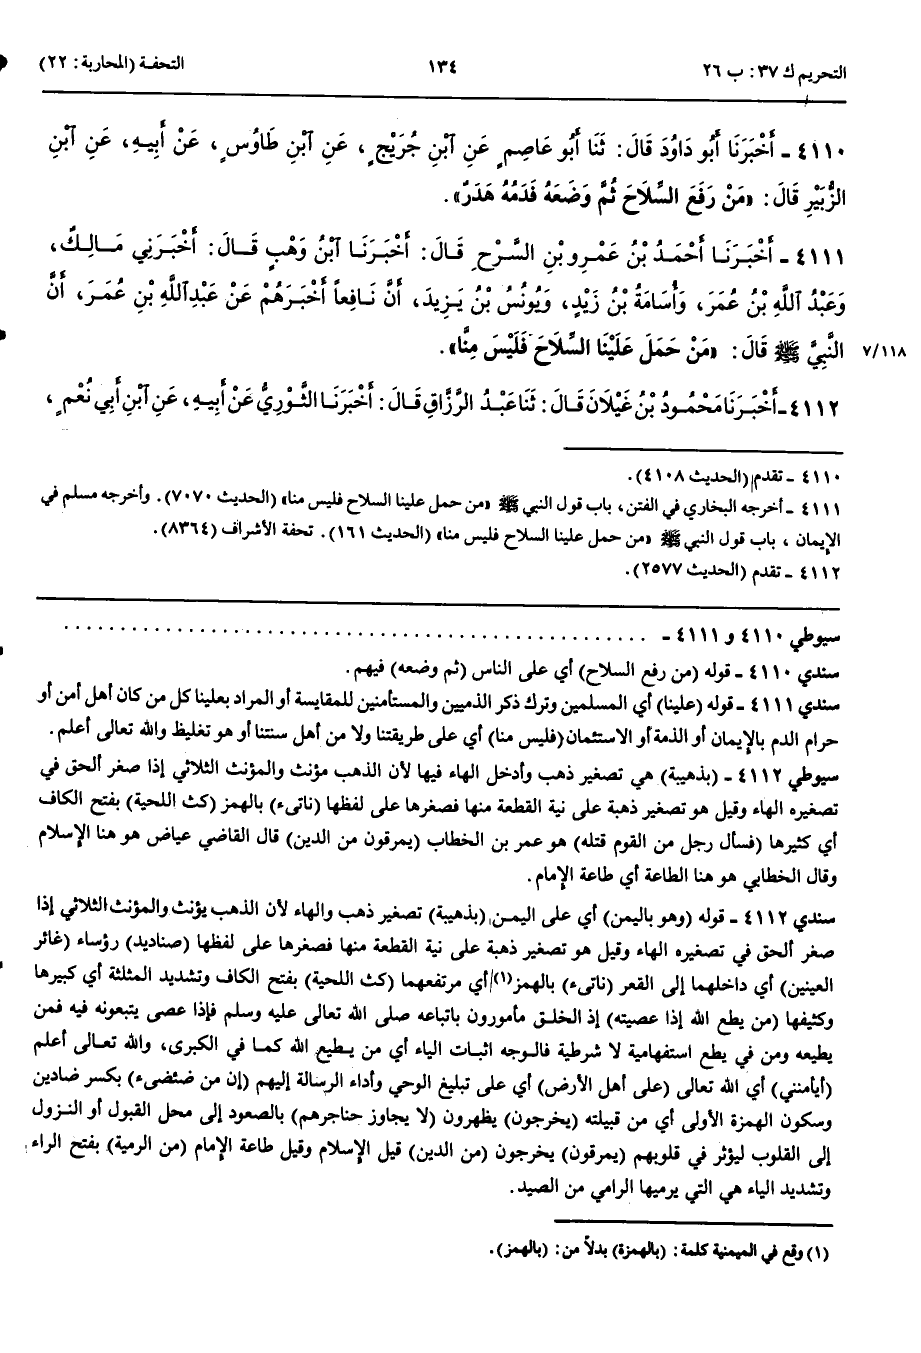 التحريم ك ٣٧: ب ٢٦
١٣٤
التحفة (المحاربة: ٢٢)
٤١١٠ - أَخْبَرَنَا أَبُو دَاوُدَ قَالَ: ثَنَا أَبُو عَاصِمٍ عَنِ ٱبْنِ جُرَيْجٍ، عَنِ ٱبْنِ طَاوُسٍ، عَنْ أَبِيهِ، عَنِ ٱبْنِ
الزُّبَيْرِ قَالَ: «مَنْ رَفَعَ السِّلَاحَ ثُمَّ وَضَعَهُ فَدَمُهُ هَدَرٌ».
٤١١١ - أَخْبَرَنَا أَحْمَدُ بْنُ عَمْرِو بْنِ السَّرْحِ قَالَ: أَخْبَرَنَا ٱبْنُ وَهْبٍ قَالَ: أَخْبَرَنِي مَالِكٌ،
وَعَبْدُ ٱللَّهِ بْنُ عُمَرَ، وَأُسَامَةُ بْنُ زَيْدٍ، وَيُونُسُ بْنُ يَزِيدَ، أَنَّ نَافِعاً أَخْبَرَهُمْ عَنْ عَبْدِ ٱللَّهِ بْنِ عُمَرَ، أَنَّ
النَّبِيَّ ﷺ قَالَ: «مَنْ حَمَلَ عَلَيْنَا السِّلَاحَ فَلَيْسَ مِنَّا».
٧/١١٨
٤١١٢ - أَخْبَرَنَا مَحْمُودُ بْنُ غَيْلَانَ قَالَ: ثَنَا عَبْدُ الرَّزَّاقِ قَالَ: أَخْبَرَنَا الثَّوْرِيُّ عَنْ أَبِيهِ، عَنِ ٱبْنِ أَبِي نُعْمٍ،
٤١١٠ - تقدم (الحديث ٤١٠٨).
٤١١١ - أخرجه البخاري في الفتن، باب قول النبي ﷺ «من حمل علينا السلاح فليس منا» (الحديث ٧٠٧٠). وأخرجه مسلم في
الإيمان ، باب قول النبي ﷺ «من حمل علينا السلاح فليس منا» (الحديث ١٦١). تحفة الأشراف (٨٣٦٤).
٤١١٢ - تقدم (الحديث ٢٥٧٧).
سيوطي ٤١١٠ و ٤١١١ - ..................................................
سندي ٤١١٠ - قوله (من رفع السلاح) أي على الناس (ثم وضعه) فيهم.
سندي ٤١١١ - قوله (علينا) أي المسلمين وترك ذكر الذميين والمستأمنين للمقايسة أو المراد بعلينا كل من كان أهل أمن أو
حرام الدم بالإيمان أو الذمة أو الاستئمان (فليس منا) أي على طريقتنا ولا من أهل سنتنا أو هو تغليظ والله تعالى أعلم.
سيوطي ٤١١٢ - (بذهيبة) هي تصغير ذهب وأدخل الهاء فيها لأن الذهب مؤنث والمؤنث الثلاثي إذا صغر ألحق في
تصغيره الهاء وقيل هو تصغير ذهبة على نية القطعة منها فصغرها على لفظها (ناتىء) بالهمز (كث اللحية) بفتح الكاف
أي كثيرها (فسأل رجل من القوم قتله) هو عمر بن الخطاب (يمرقون من الدين) قال القاضي عياض هو هنا الإسلام
وقال الخطابي هو هنا الطاعة أي طاعة الإمام.
سندي ٤١١٢ - قوله (وهو باليمن) أي على اليمن (بذهيبة) تصغير ذهب والهاء لأن الذهب يؤنث والمؤنث الثلاثي إذا
صغر ألحق في تصغيره الهاء وقيل هو تصغير ذهبة على نية القطعة منها فصغرها على لفظها (صناديد) رؤساء (غائر
العينين) أي داخلهما إلى القعر (ناتىء) بالهمز(١) أي مرتفعهما (كث اللحية) بفتح الكاف وتشديد المثلثة أي كبيرها
وكثيفها (من يطع الله إذا عصيته) إذ الخلق مأمورون باتباعه صلى الله تعالى عليه وسلم فإذا عصى يتبعونه فيه فمن
يطيعه ومن في يطع استفهامية لا شرطية فالوجه اثبات الياء أي من يطيع الله كما في الكبرى، والله تعالى أعلم
(أيأمنني) أي الله تعالى (على أهل الأرض) أي على تبليغ الوحي وأداء الرسالة إليهم (إن من ضئضىء) بكسر ضادين
وسكون الهمزة الأولى أي من قبيلته (يخرجون) يظهرون (لا يجاوز حناجرهم) بالصعود إلى محل القبول أو النزول
إلى القلوب ليؤثر في قلوبهم (يمرقون) يخرجون (من الدين) قيل الإسلام وقيل طاعة الإمام (من الرمية) بفتح الراء
وتشديد الياء هي التي يرميها الرامي من الصيد.
(١) وقع في الميمنية كلمة: (بالهمزة) بدلاً من: (بالهمز).